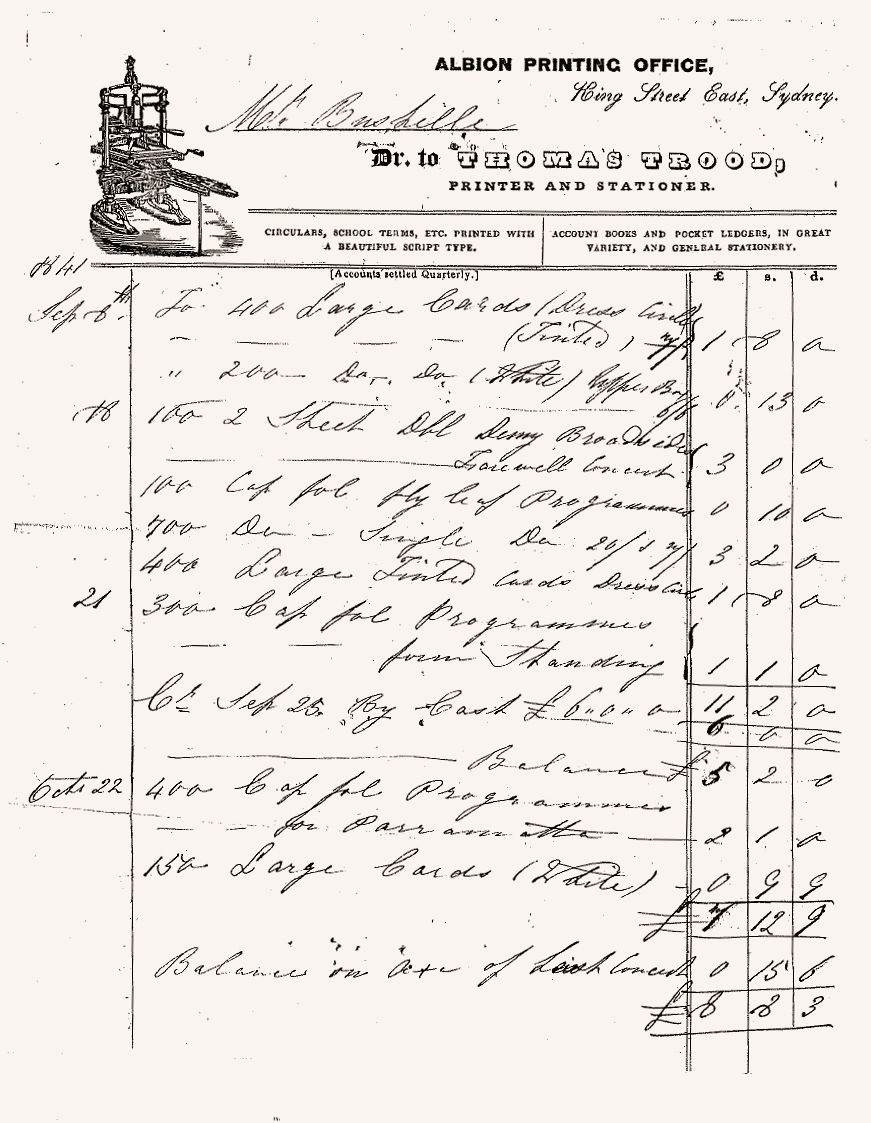 ALBION PRINTING OFFICE,
King Street East, Sydney.
Mr. Bushelle
Dr. to THOMAS TROOD,
PRINTER AND STATIONER.
CIRCULARS, SCHOOL TERMS, ETC. PRINTED WITH A BEAUTIFUL SCRIPT TYPE.
ACCOUNT BOOKS AND POCKET LEDGERS, IN GREAT VARIETY, AND GENERAL STATIONERY.
1841
[Accounts settled Quarterly.] £ s. d.
Sep 8th. To 400 Large Cards (Dress Circle
— — — — (Tinted) 7/ 1 8 0
" 200 — Do. Do (White) Upper Box 6/6 0 13 0
18 100 2 Sheet Dbl Demy Broadsides
Farewell Concert 3 0 0
100 Cap fol. fly leaf Programmes 0 10 0
700 Do — Single Do 20/ & 7/ 3 2 0
400 Large Tinted Cards Dress Circ 1 8 0
21 300 Cap fol Programmes
— — form Standing 1 1 0
Cr Sep 25. By Cash £ 6 " 0 " 0 11 2 0
6 0 0
Balance £ 5 2 0
Octr 22 400 Cap fol Programmes
— — for Parramatta — 2 1 0
150 Large Cards (White) - 0 9 9
£ 7 12 9
Balance on of Last Concert 0 15 6
£ 8 8 3